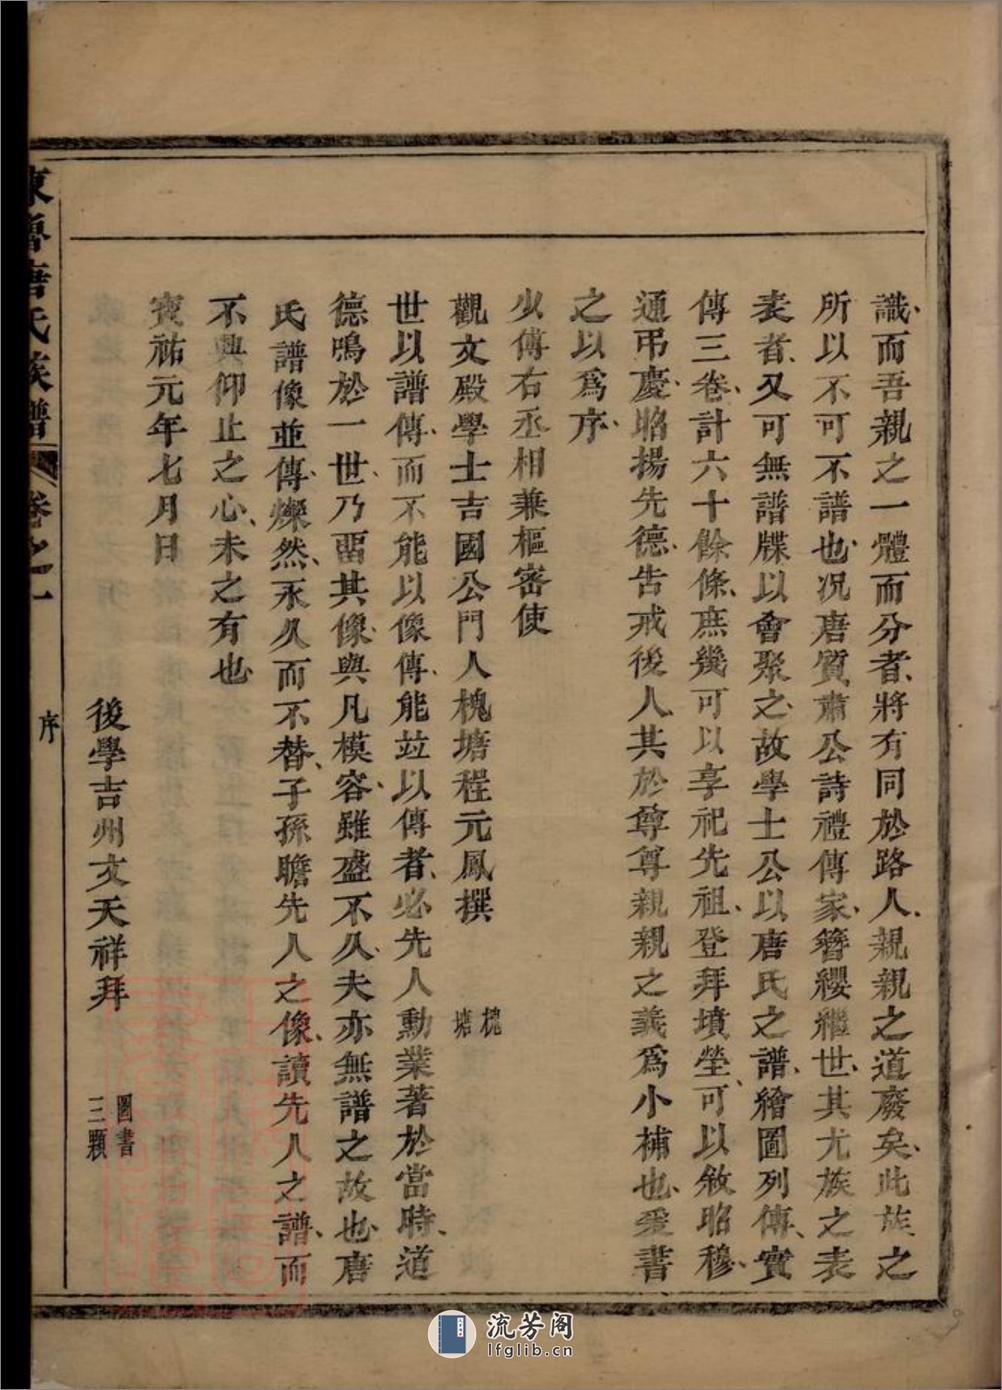 識而吾親之一體而分者、將有同於路人、親親之道廢矣、此族之
所以不可不譜也、况唐質肅公詩禮傳家、簪纓繼世、其尤族之表
表者、又可無譜牒以會聚之、故學士公以唐氏之譜、繪圖列傳、實
傳三卷、計六十餘條、庶幾可以享祀先祖、登拜墳塋、可以敘昭穆、
通弔慶、昭揚先德、告戒後人、其於尊尊親親之義爲小補也、爰書
之以爲序、
少傅右丞相兼樞密使
觀文殿學士吉國公門人槐塘程元鳳撰
槐塘
世以譜傳、而不能以像傳、能竝以傳者、必先人勳業著於當時、道
德鳴於一世、乃畱其像與凡模容雖盛不久、夫亦無譜之故也、唐
氏譜像並傳、爍然永久而不替、子孫瞻先人之像、讀先人之譜、而
不興仰止之心、未之有也、
寳祐元年七月日
後學吉州文天祥拜
圖書三顆
東魯唐氏族譜 卷之一 序
流芳阁
lfglib.cn